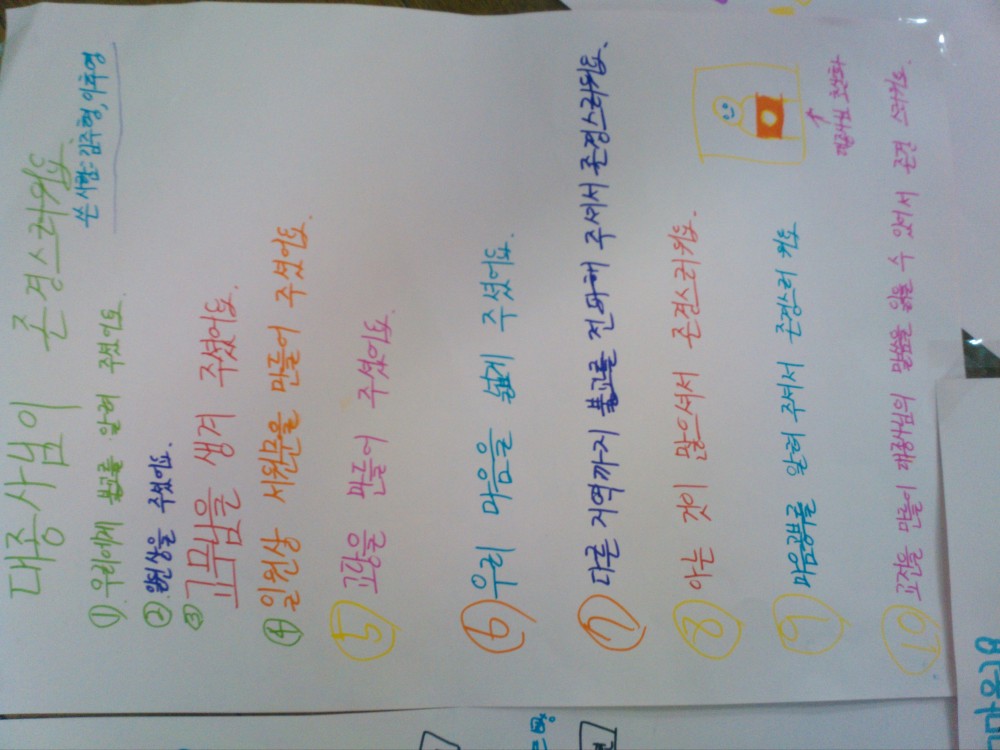 대종사님이 존경스러워요.
쓴 사람: 김주형, 이후영
① 우리에게 불교를 알려 주셨어요.
② 일원상을 주셨어요.
③ 교무님을 생겨 주셨어요.
④ 일원상 서원문을 만들어 주셨어요.
⑤ 교당을 만들어 주셨어요.
⑥ 우리 마음을 넓게 주셨어요.
⑦ 다른 지역까지 불교를 전파해 주셔서 존경스러워요.
⑧ 아는 것이 많으셔서 존경스러워요.
↑
대종사님 초상화
⑨ 마음공부를 알려 주셔서 존경스러워요
⑩ 교전을 만들어 대종사님의 말씀을 읽을 수 있어서 존경스러워요.